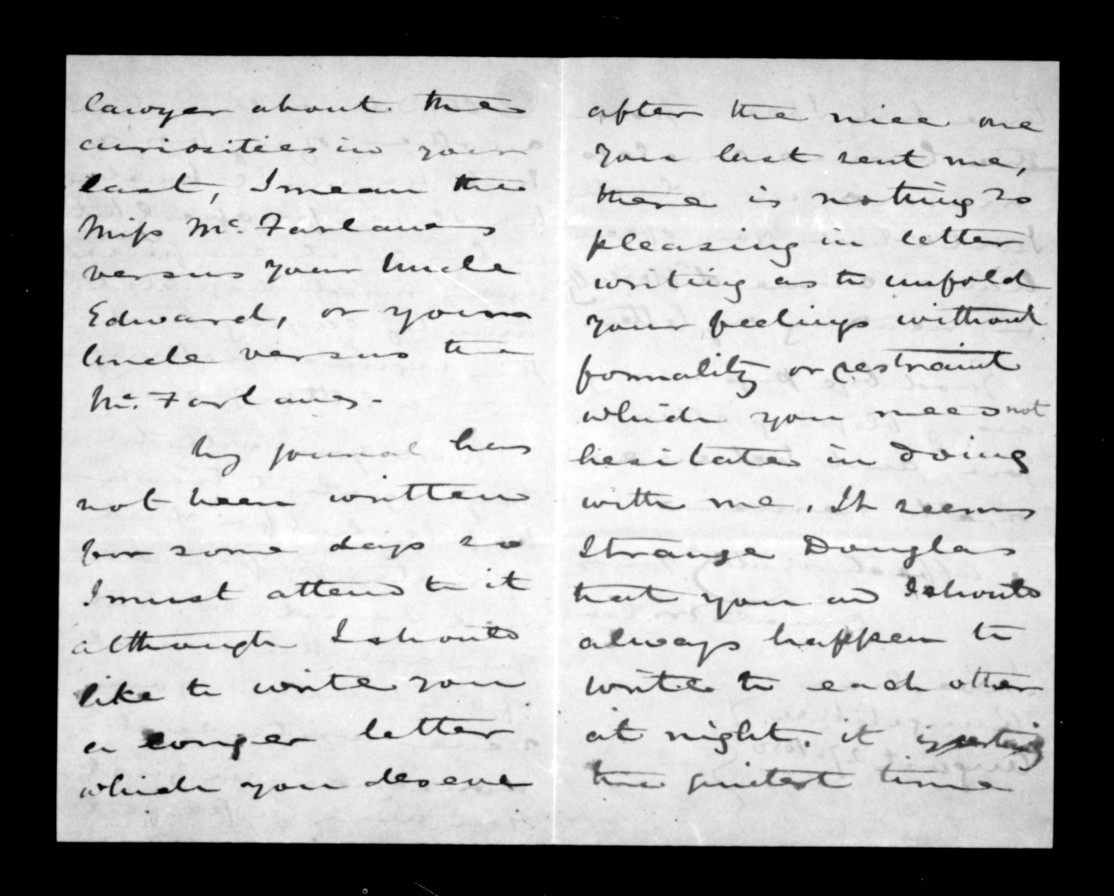 lawyer about the
curiosities in your
last, I mean the
Miss McFarlanes
versus your Uncle
Edward, or your
Uncle versus the
McFarlanes.-
My journal has
not been written
for some days so
I must attend to it
although I should
like to write you
a longer letter
which you deserve
after the nice one
you last sent me,
there is nothing so
pleasing in letter
writing as to unfold
your feelings without
formality or restraint
which you need not
hesitate in doing
with me. It seems
strange Douglas
that you and I should
always happen to
write to each other
at night. it is certainly
the quietest time